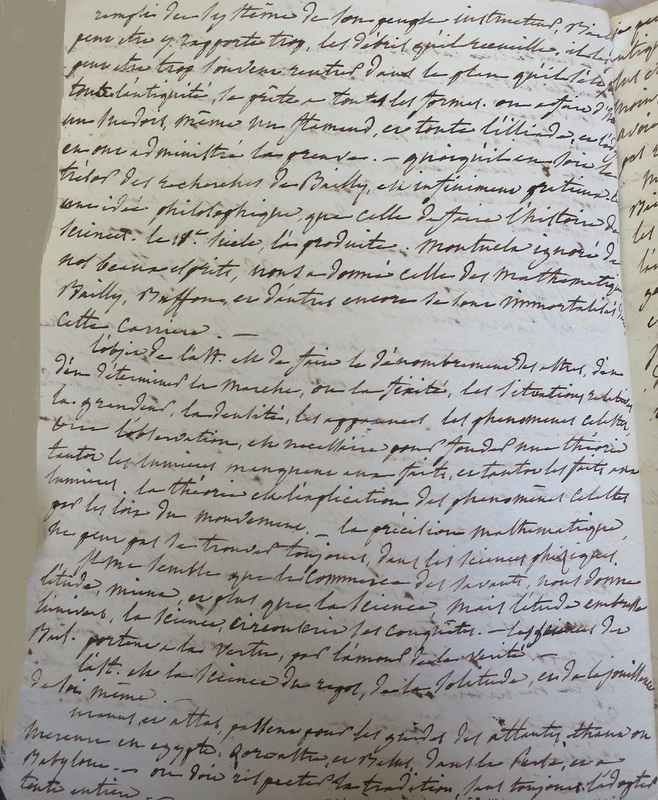 remplie du système de son peuple instructeur, Bailly
peut être y rapporte trop, les débris qu'il recueille, et les
peut être trop souvent rentrer dans le plan qu'il s'est
toute l'antiquité, se prête a toutes les formes. on a fait d'
un suédois, même un flamand, et toute l'illiade, et l'
en ont administré la preuve. — quoiqu'il en soit le
trésor des recherches de Bailly, est infiniment précieux. c'
une idée philosophique, que celle de faire l'histoire des
sciences. le 18e siècle, l'a produite. Montucla ignoré de
nos beaux esprits, nous a donné celle des mathématiques
Bailly, Buffon, et d'autres encore se sont immortalisés dans
cette carriere. —
l'objet de l'ast. est de faire le dénombrement des astres, d'en
d'en déterminer la marche, ou la fixité, les situations relatives
la grandeur, la densité, les apparences, les phenomenes celestes,
l'observation, est necessaire pour fonder une théorie
tantot les lumieres manquent aux faits, et tantot les faits aux
lumieres, la théorie est l'explication, des phenomènes celestes
par les loix du mouvement, — la précision mathematique,
ne peut pas se trouver toujours, dans les sciences phisiques.
il me semble que le commerce des savants, nous donne
l'étude, mieux, et plus que la science. Mais l'étude embrasse
l'univers, la science, circonscrit ses conquêtes. — les sciences de
Bail. portent a la vertu, par l'amour de la verité —
l'ast. est la science du repos, de la solitude, et de la jouissance
de soi même. —
uranus, et atlas, passent pour les guides des atlantes, thaut ou
mercure en egypte. Zoroastre, et Belus, dans la Perse, et a
Babylone. — on doit respecter la tradition, sans toujours l'adopter
toute entiere. —